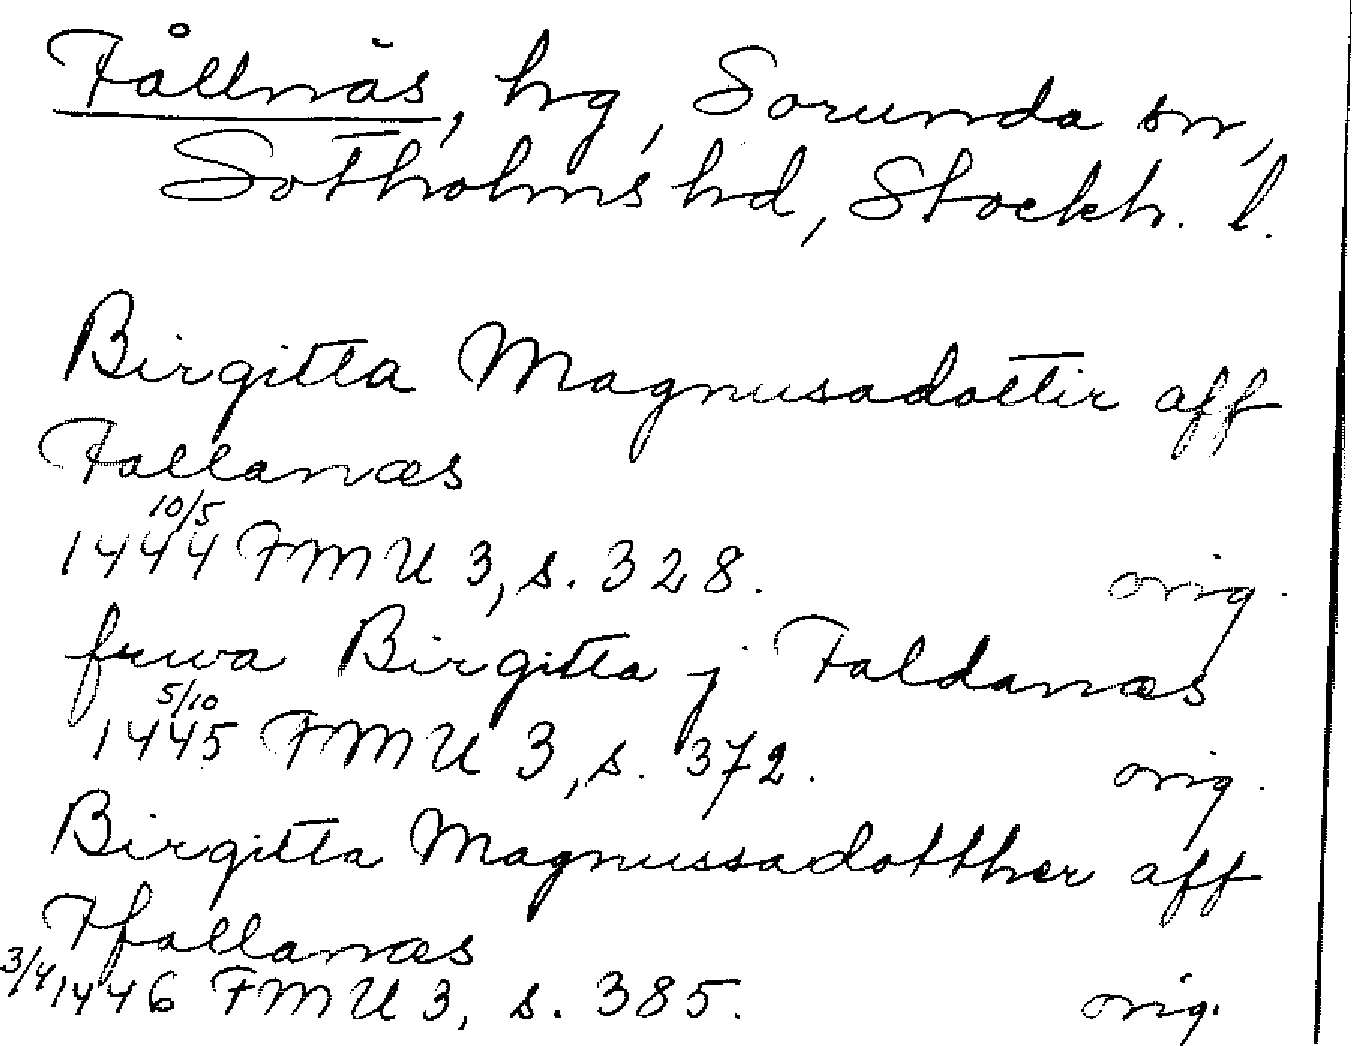 Fållnäs, hg, Sorunda sn,
Sotholms hd, Stockh. l.
Birgitta Magnusadottir aff
Fallanæs
10/5
1444 FMU 3, s. 328. orig.
fruva Birgitta j Faldanæs
5/10
1445 FMU 3, s. 372. orig.
Birgitta Magnussadotther aff
Ffallanæs
3/4 1446 FMU 3, s. 385. orig.